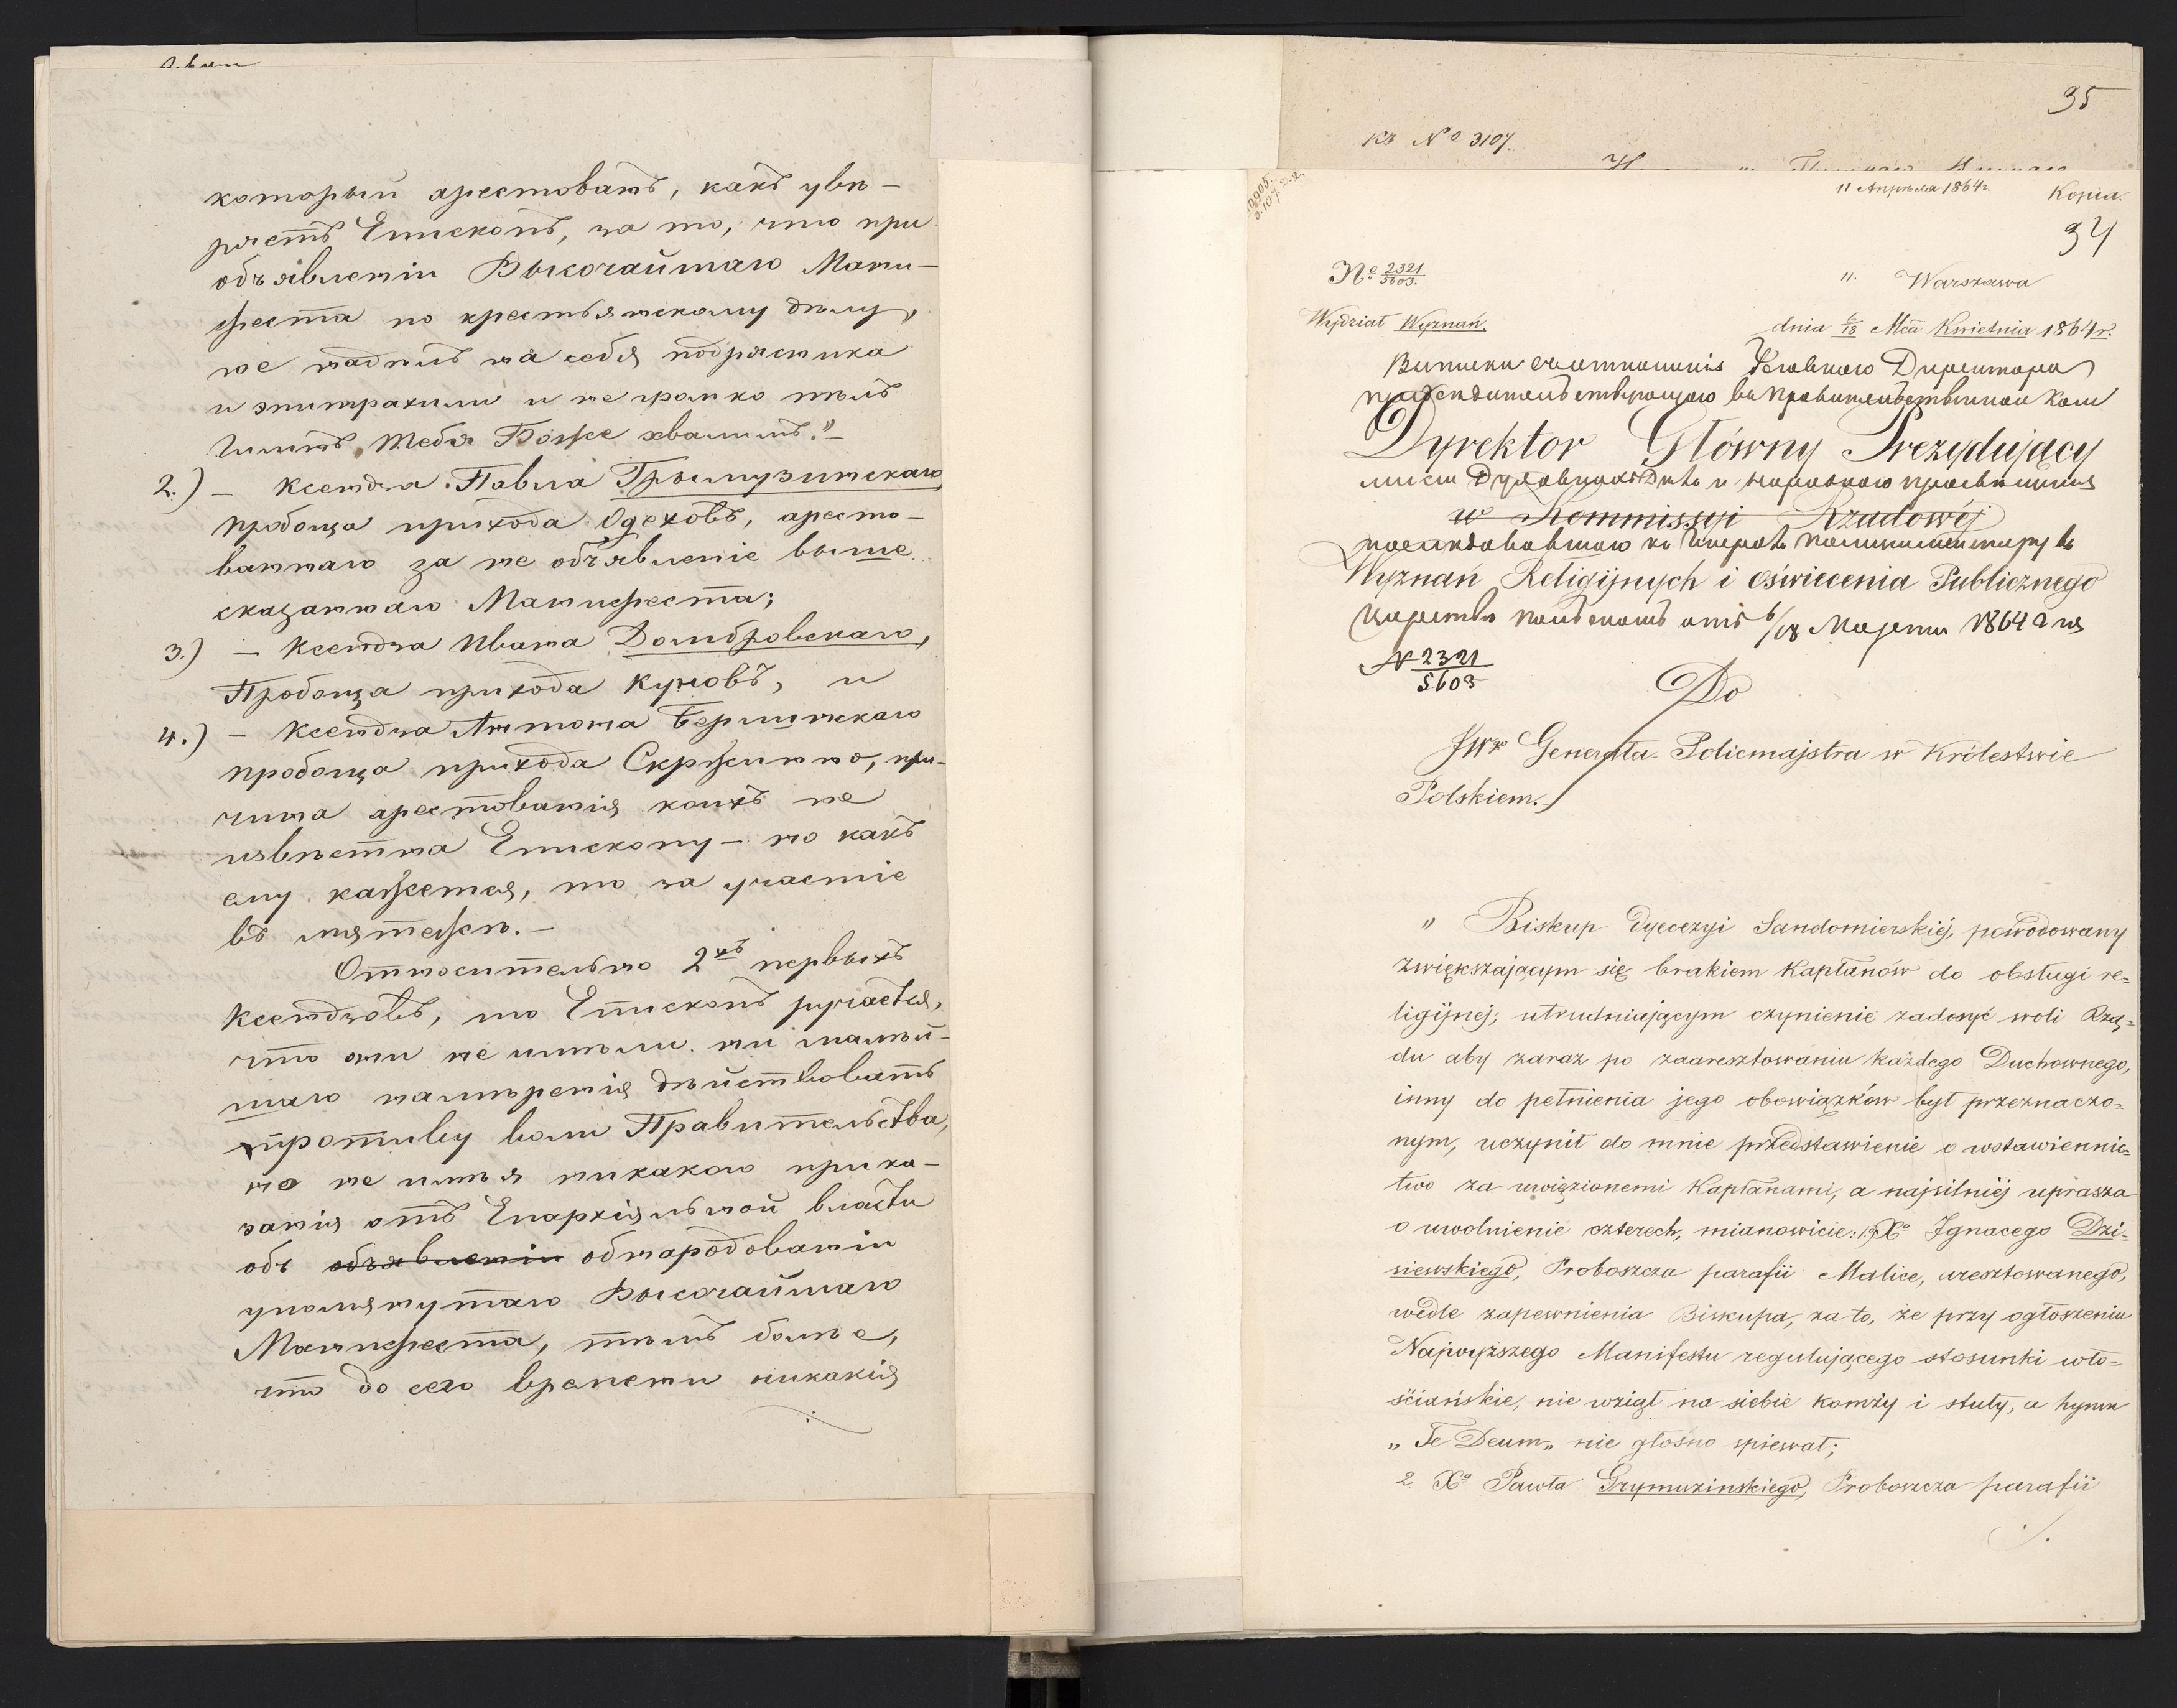 который арестованъ, какъ увѣ-
ряетъ Епископъ, за то, что при
объявленіи Высочайшаго Мани-
феста по крестьянскому дѣлу,
не надѣлъ на себя подрясника
и эпитрахили и не громко пѣлъ
Гимнъ „Тебя Боже хвалимъ."-
2.) - Ксендза Павла Грымузинскаго
пробоща прихода Одеховъ, аресто-
ваннаго за не объявленіе выше
сказаннаго Манифеста;
3.) - Ксендза Ивана Домбровскаго,
Пробоща прихода Куновъ, и
4.) - Ксендза Антона Берлинскаго
пробоща прихода Скржинно, при-
чина арестованія коихъ не
извѣстна Епископу - но какъ
ему кажется, то за участіе
въ мятежѣ.-
Относительно 2хъ первыхъ
Ксендзовъ, то Епископъ ручается,
что они не имѣли ни малѣй-
шаго намѣренія дѣйствовать
противу воли Правительства,
но не имѣя никакого прика-
занія отъ Епархіяльной власти
объ объявленіи обнародованіи
упомянутаго Высочайшаго
Манифеста, тѣмъ болѣе,
что до сего времени никакія
95
Къ № 3107.
11 Апрѣля 1864 г.
Копія.
94
№ 2321/5603.
Warszawa
Wydział Wyznań.
dnia 6/18 Mca Kwietnia 1864 r.
Выписки отношенія Главнаго Директора
предсѣдательствующаго въ Правительственной Ком
Dyrektor Główny Prezydujący
мисіи Духовныхъ Дѣлъ и народнаго просвѣщенія
w Kommissyi Rządowej
послѣдовавшаго къ Генералъ Полиціймейстеру въ
Wyznań Religijnych i Oświecenia Publicznego
Царствѣ Польскомъ отъ 6/18 1864 г за
№ 2321/5603
Do
JWo Generała-Policmajstra w Królestwie
Polskiem.
" Biskup Dyecezyi Sandomierskiéj, powodowany
zwiększającym się brakiem Kapłanów do obsługi re=
ligijnej, utrudniającym czynienie zadosyć woli Rzą=
du aby zaraz po zaaresztowaniu każdego Duchownego,
inny do pełnienia jego obowiązków był przeznaczo=
nym, uczynił do mnie przedstawienie o wstawiennic=
two za uwięzionemi Kapłanami, a najsilniéj uprasza
o uwolnienie czterech, mianowicie: 1. Xa Ignacego Dzi=
siewskiego, Proboszcza parafii Malice, aresztowanego,
wedle zapewnienia Biskupa, za to, że przy ogłoszeniu
Najwyższego Manifestu regulującego stosunki wło=
ściańskie, nie wziął na siebie komży i stuły, a hymn
„Te Deum„ nie głośno śpiewał;
2. Xa Pawła Grymuzinskiego, Proboszcza parafii